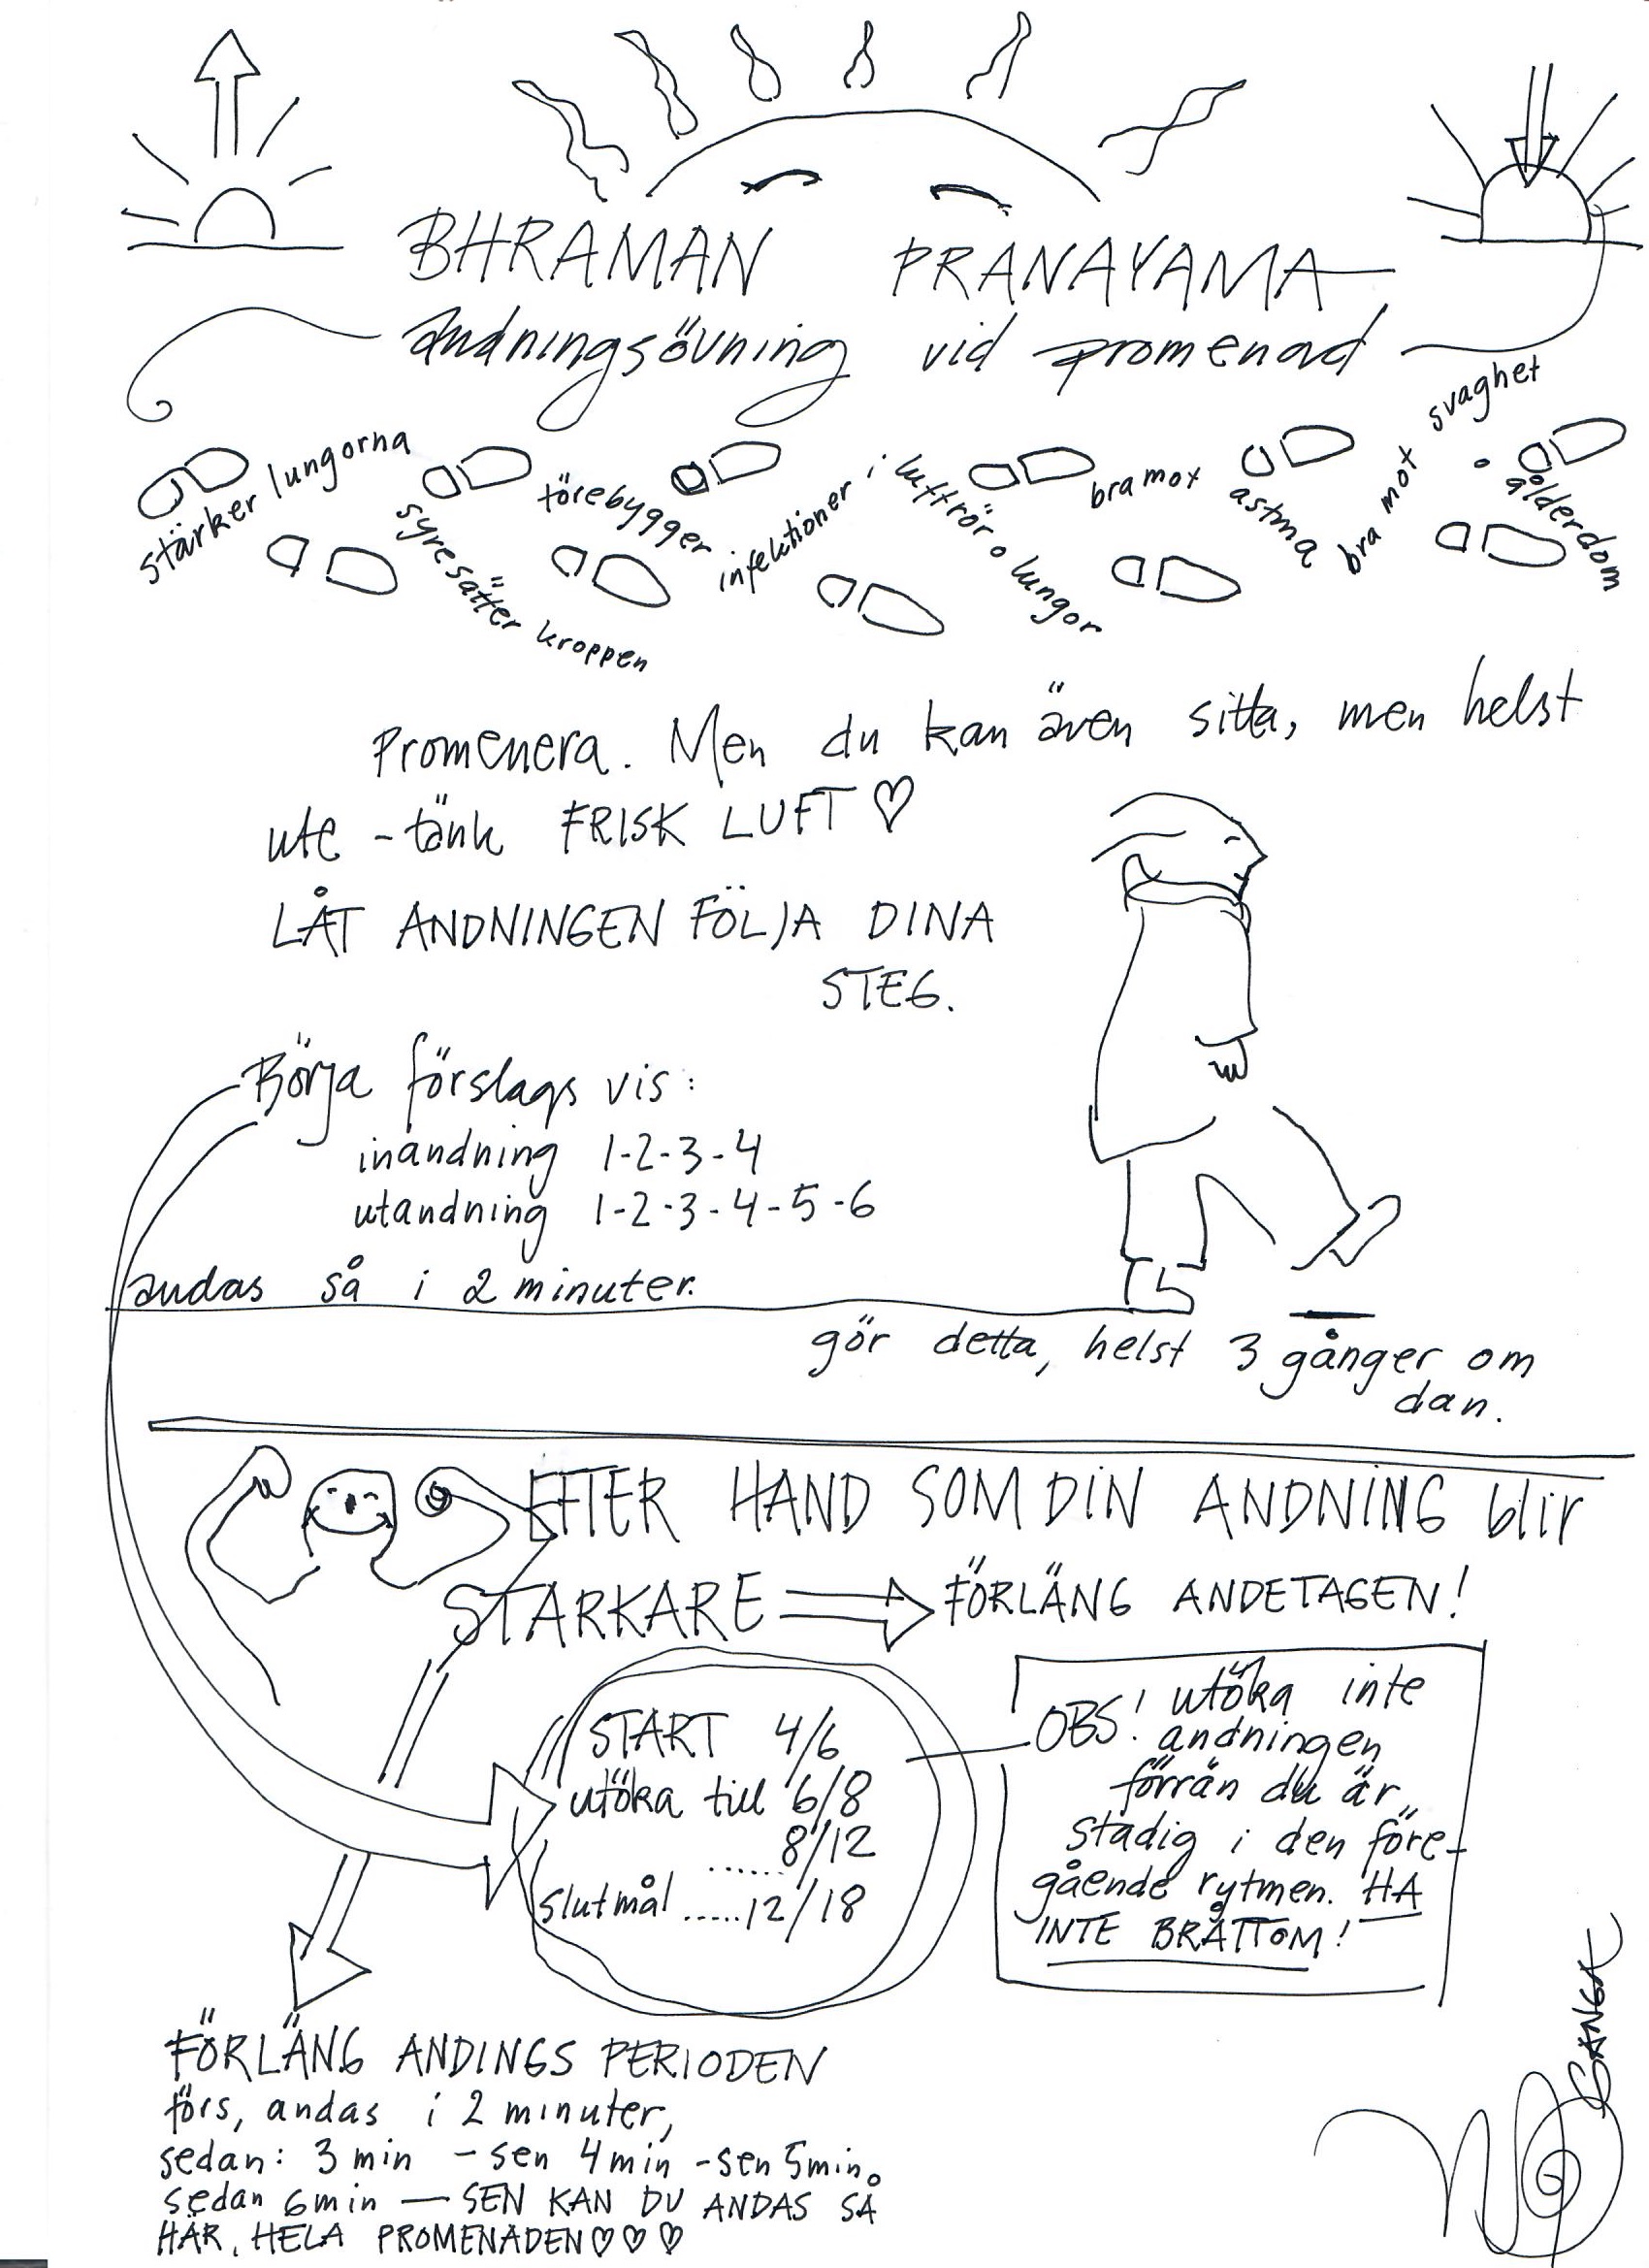 BHRAMAN PRANAYAMA
andningsövning vid promenad
stärker lungorna
syresätter kroppen
förebygger
infektioner i luftrör o lungor
bra mot astma
bra mot svaghet
o ålderdom
Promenera. Men du kan även sitta, men helst
ute - tänk FRISK LUFT ♡
LÅT ANDNINGEN FÖLJA DINA
STEG.
Börja förslags vis:
inandning 1-2-3-4
utandning 1-2-3-4-5-6
andas så i 2 minuter.
gör detta, helst 3 gånger om
dan.
EFTER HAND SOM DIN ANDNING blir
STARKARE ⇒ FÖRLÄNG ANDETAGEN!
START 4/6
utöka till 6/8
......8/12
slutmål.....12/18
OBS! utöka inte
andningen
förrän du är
stadig i den före-
gående rytmen. HA
INTE BRÅTTOM!
FÖRLÄNG ANDINGS PERIODEN
förs, andas i 2 minuter,
sedan: 3 min - sen 4 min - sen 5 min.
sedan 6 min — SEN KAN DU ANDAS SÅ
HÄR, HELA PROMENADEN ♡♡♡